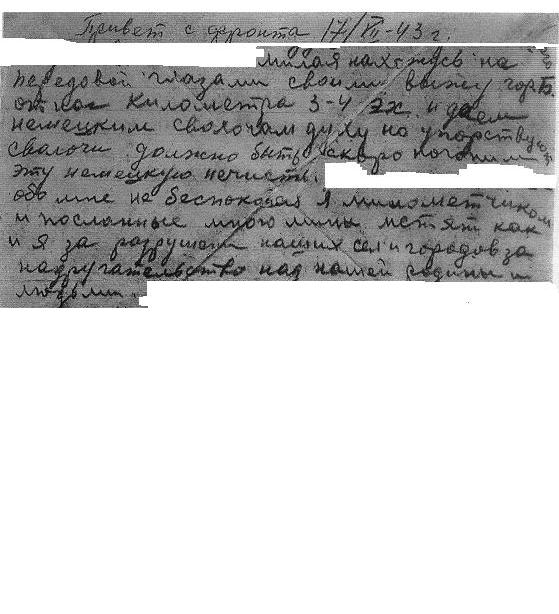 Привет с фронта 17/VII-43 г.
милая нахожусь на
передовой глазами своими вижу гор Б.
от нас километра 3-4 эх. и даем
немецким сволочам духу но упорствуют
сволочи должно быть скоро погоним
эту немецкую нечисть.
обо мне не беспокойся Я минометчиком
и посланные мною мины мстят как
и я за разрушен наших сел и городов за
надругательство над нашей родины и
людьми.